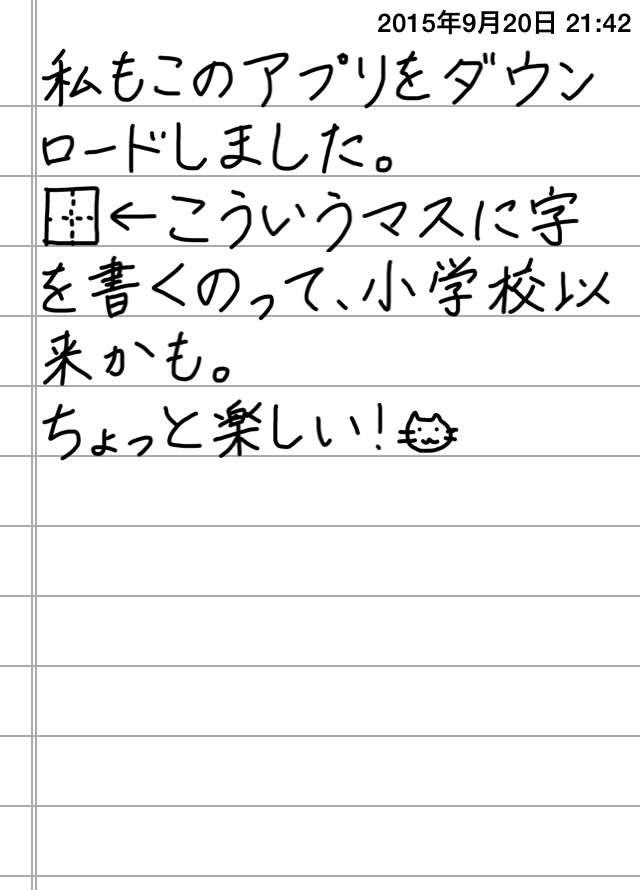 2015年9月20日 21:42
私もこのアプリをダウン
ロードしました。
←こういうマスに字
を書くのって、小学校以
来かも。
ちょっと楽しい!